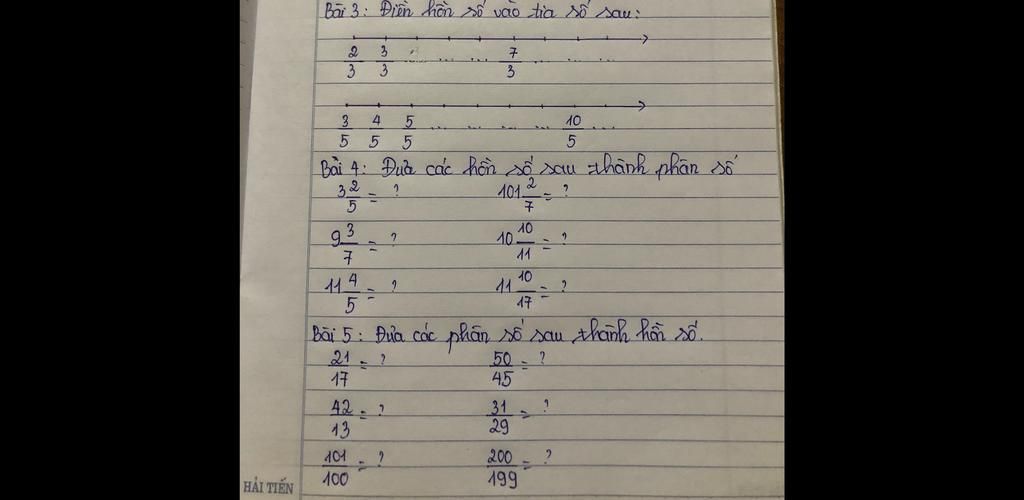 Bài 3: Điền hỗn số vào tia số sau:
2/3 3/3 ... ... ... 7/3 ... ... ...
3/5 4/5 5/5 ... ... ... ... 10/5 ...
Bài 4: Đưa các hỗn số sau thành phân số
3 2/5 = ? 101 2/7 = ?
9 3/7 = ? 10 10/11 = ?
11 4/5 = ? 11 10/17 = ?
Bài 5: Đưa các phân số sau thành hỗn số.
21/17 = ? 50/45 = ?
42/13 = ? 31/29 = ?
101/100 = ? 200/199 = ?
HẢI TIẾN